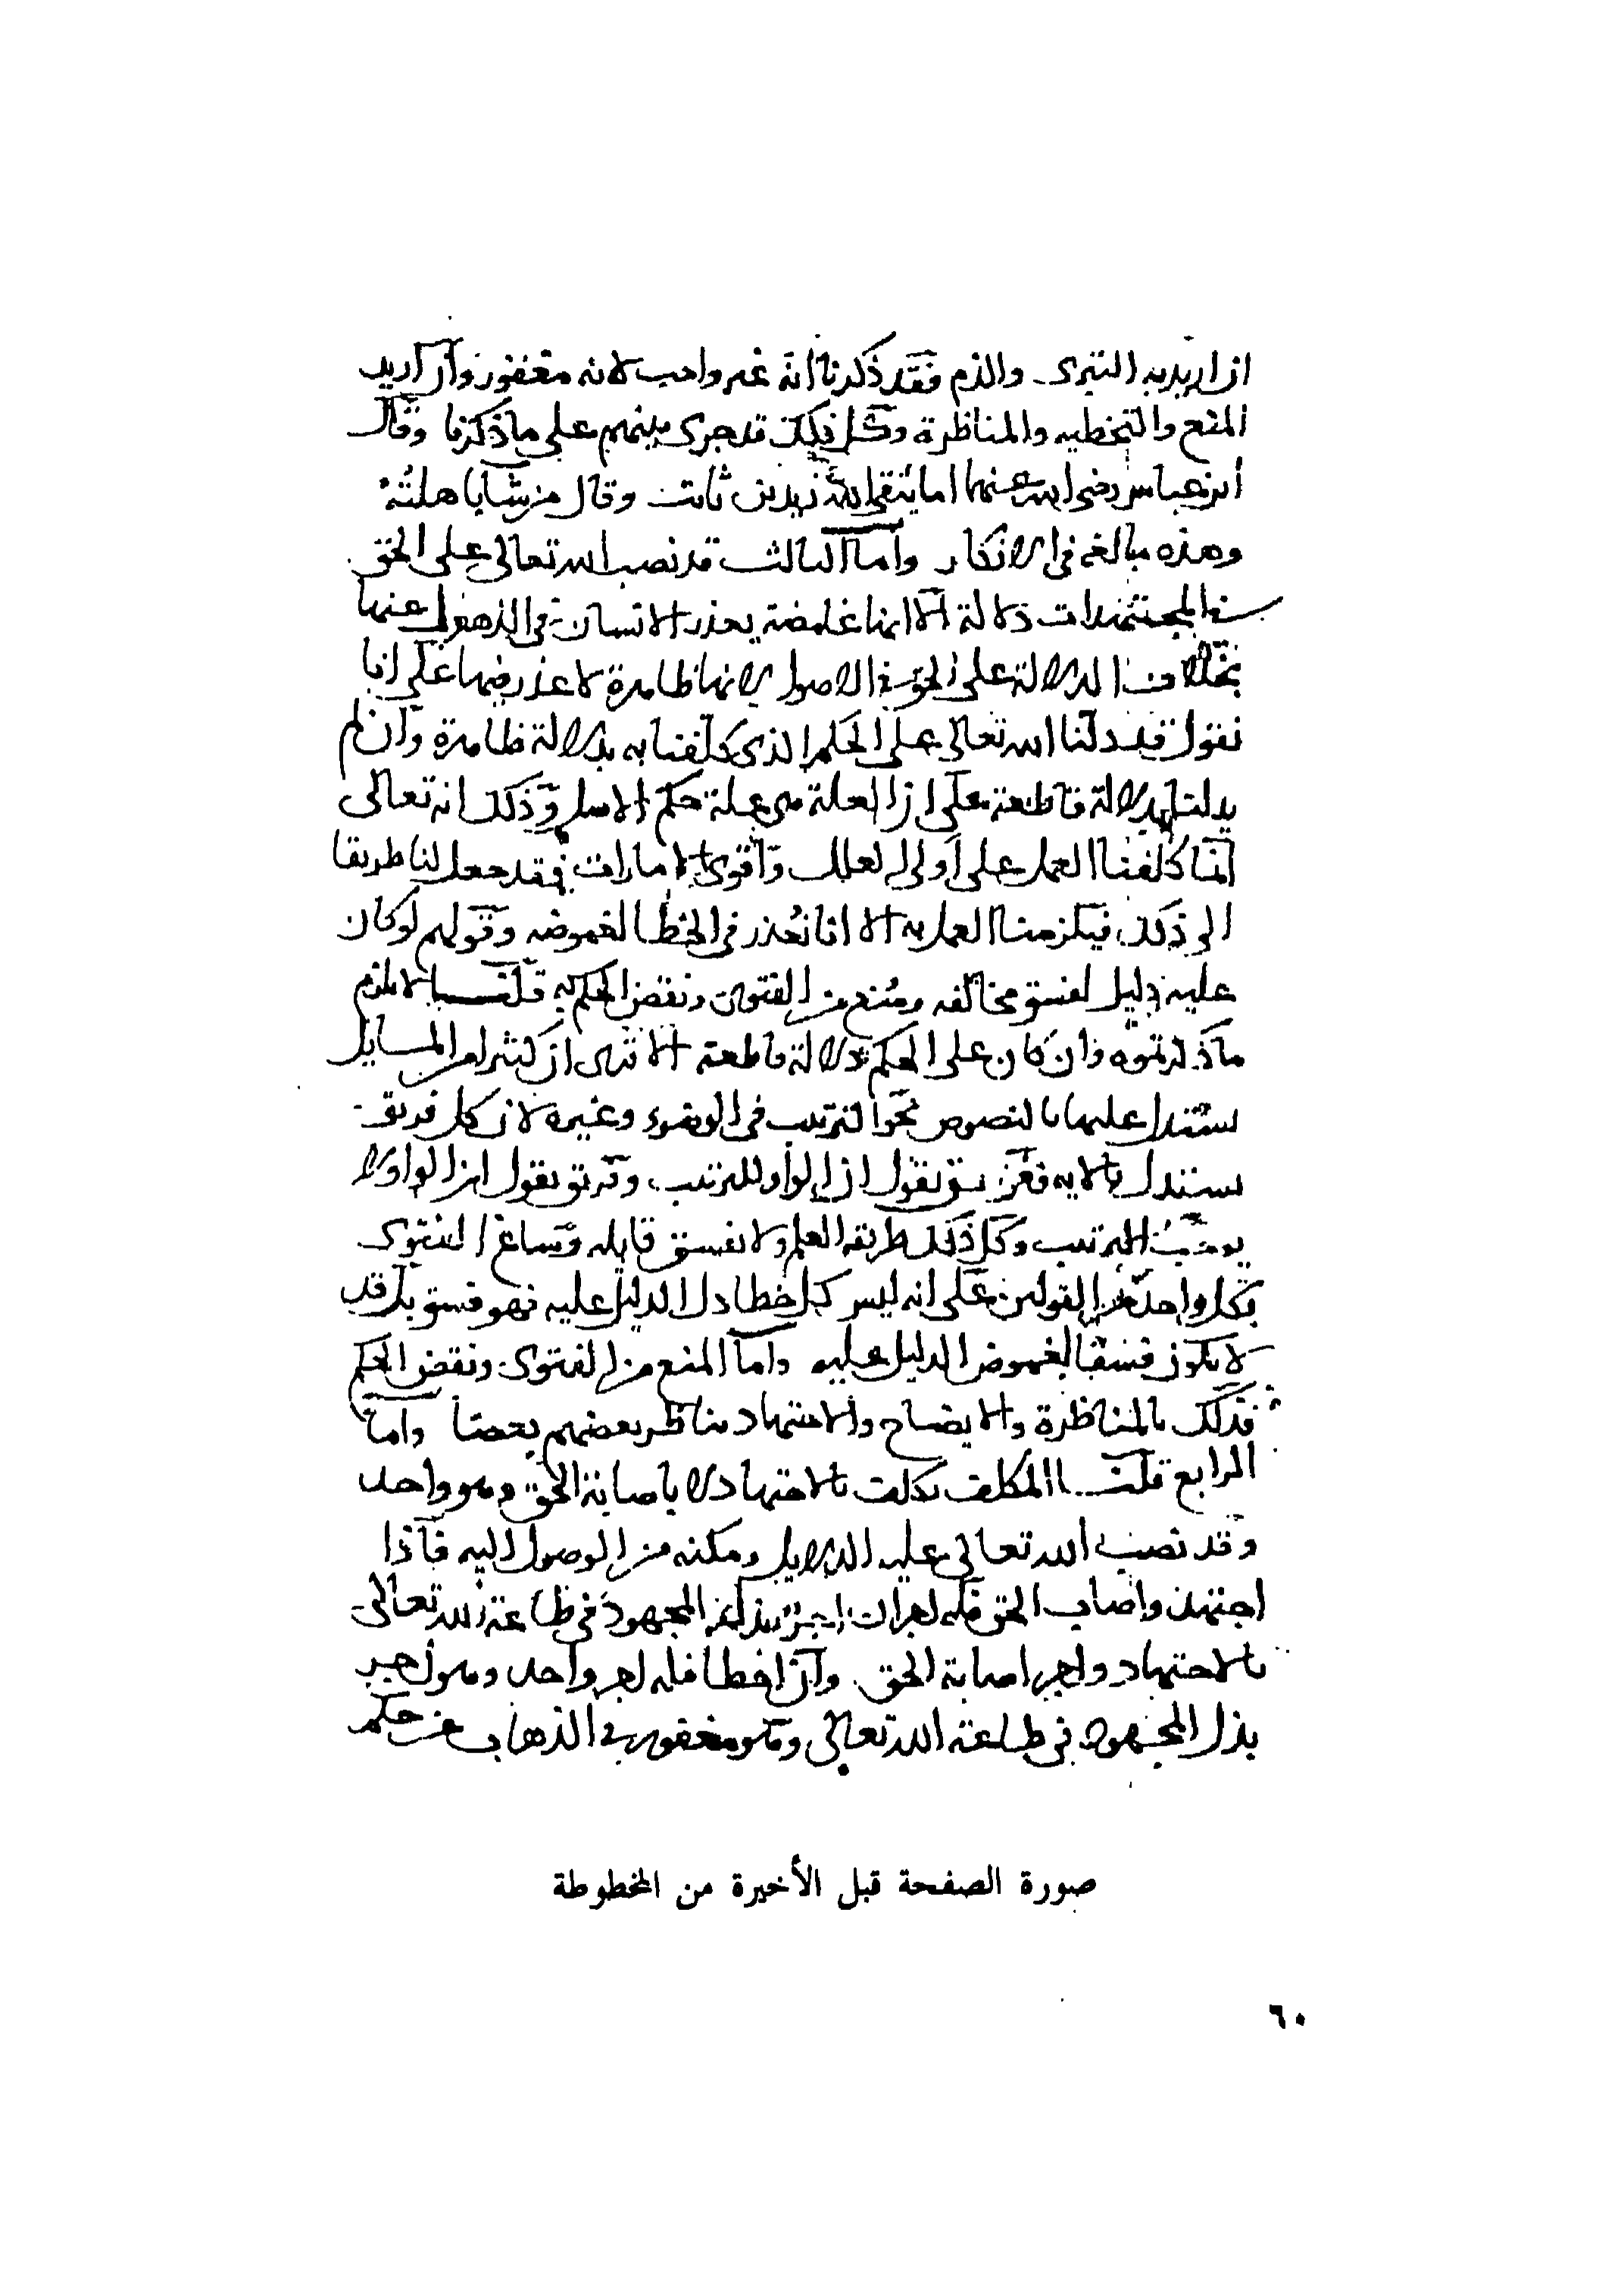 ان اريد به التبري والذم فقد ذكرنا انه غير واجب لانه مغفور وان اريد
المنع والتخطيه والمناظرة وكل ذلك قد جرى بينهم على ما ذكرنا وقال
ابن عباس رضى الله عنهما اما يتقى الله زيد بن ثابت وقال من شا باهلته
وهذه مبالغه في الانكار واما الثالث قد نصب الله تعالى على الحق
في المجتهدات دلالة الا انها غامضة يعذر الانسان في الذهول عنها
بخلاف الدلالة على الحق في الاصول لانها ظاهرة لا عذر فيها على انا
نقول قد دلنا الله تعالى على الحكم الذي كلفنا به بدلالة ظاهرة وان لم
يدلنا بدلالة قاطعة على ان العلة هي علة حكم الاصل وذلك انه تعالى
انما كلفنا العمل على اولى العلل واقوى الامارات فقد جعل لنا طريقا
الى ذلك فيلزمنا العمل به الا انا نعذر في الخطا لغموضه وقولهم لو كان
عليه دليل لفسق مخالفه ومنع من الفتوى ونقض الحكم به قلنا لا يلزم
ما ذكرتموه وان كان على الحكم دلالة قاطعة الا ترى ان كثيرا من المسايل
يستدل عليها بالنصوص نحو الترتيب في الوضوء وغيره لان كل فريق
يستدل بالايه ففريق يقول ان الواو للترتيب وفريق يقول ان الواو لا
يوجب الترتيب وكل ذلك طريقه العلم ولا نفسق قايله وساغ الفتوى
بكل واحد من القولين على انه ليس كل خطا دل الدليل عليه فهو فسق بل قد
لا يكون فسقا لغموض الدليل عليه واما المنع من الفتوى ونقض الحكم
فذلك بالمناظرة والايضاح والاجتهاد يناظر بعضهم بعضا واما
الرابع قلنا المكلف يكلف بالاجتهاد لا باصابة الحق وهو واحد
وقد نصب الله تعالى عليه الدلايل ومكنه من الوصول اليه فاذا
اجتهد واصاب الحق فله اجران اجر بذل المجهود في طاعة الله تعالى
بالاجتهاد واجر اصابة الحق وان اخطا فله اجر واحد وهو اجر
بذل المجهود في طاعة الله تعالى وهو مغفور في الذهاب عن حكم
صورة الصفحة قبل الأخيرة من المخطوطة
٦٠